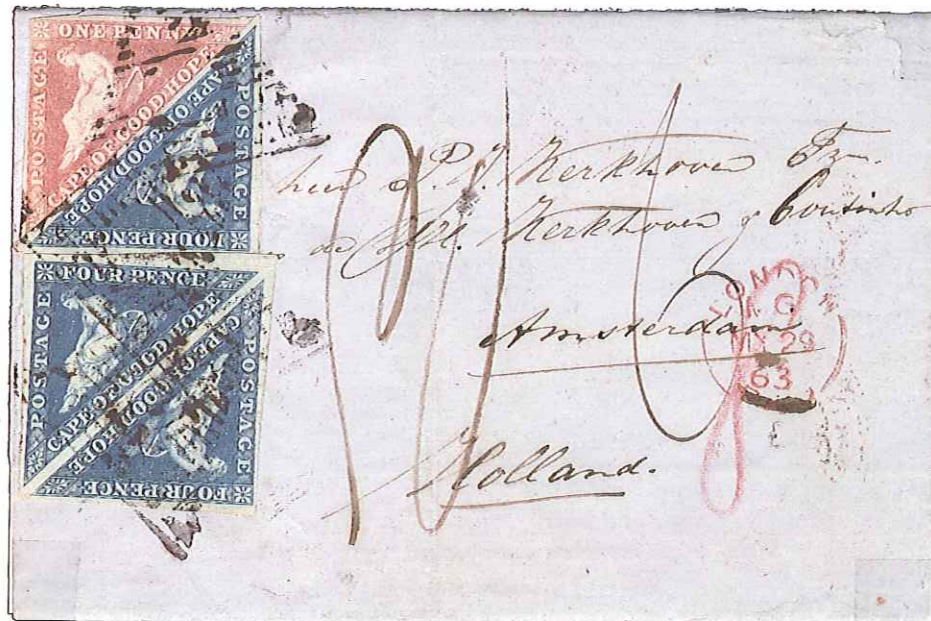 ONE PENNY
POSTAGE
CAPE OF GOOD HOPE
CAPE OF GOOD HOPE
POSTAGE
FOUR PENCE
FOUR PENCE
POSTAGE
CAPE OF GOOD HOPE
CAPE OF GOOD HOPE
POSTAGE
FOUR PENCE
heer P. J. Kerkhoven Fzn.
de HH. Kerkhoven & Coutinho
Amsterdam
Holland.
LONDON
MY 29
63